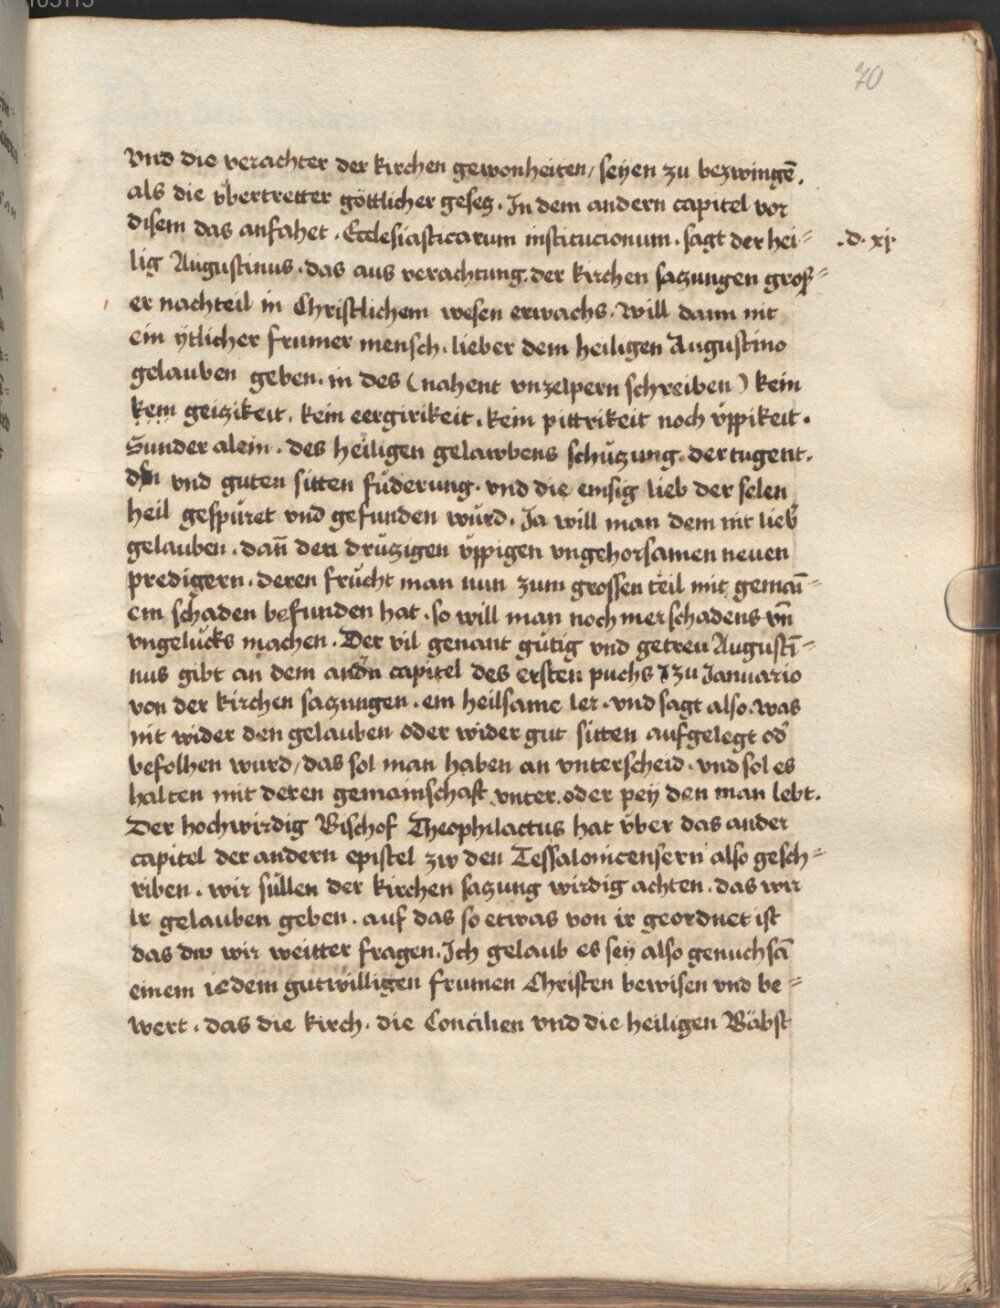 70
vnd die verachter der kirchen gewonheiten / seyen zu bezwingē.
als die v̈bertretter göttlicher gesetz. In dem andern capitel vor
disem das anfahet. Ecclesiasticarum institucionum. sagt der hei=
.d. xj.
lig Augustinus. das aus verachtung. der kirchen satzungen gross=
er nachteil in Christlichem wesen erwachs. Will dann nit
ein ytlicher frumer mensch. lieber dem heiligen Augustino
gelauben geben. in des (nahent vnzelpern schreiben) kein
kein geizikeit. kein eergirikeit. kein pittrikeit noch v̈ppikeit.
Sunder alein. des heiligen gelawbens schützung. der tugent.
vnd guten sitten füderung. vnd die emsig lieb der selen
heil gespüret vnd gefunden würd. Ja will man dem nit lieb
gelauben. dañ den drützigen v̈ppigen vngehorsamen neuen
predigern. deren frücht man nun zum grossen teil mit gemaī=
em schaden befunden hat. so will man noch mer schadens vñ
vngelücks machen. Der vil genant gütig vnd getreu Augustī=
nus gibt an dem andn capitel des ersten puchs zu Ianuario
von der kirchen satzungen. ein heilsame ler. vnd sagt also. was
nit wider den gelauben oder wider gut sitten aufgelegt od
befolhen wurd / das sol man haben an vnterscheid. vnd sol es
halten mit deren gemainschaft vnter. oder pey den man lebt.
Der hochwirdig Bischof Theophilactus hat v̈ber das ander
capitel der andern epistel zw den Tessalonicensern also gesch=
riben. wir süllen der kirchen satzung wirdig achten. das wir
ir gelauben geben. auf das so etwas von ir geordnet ist
das dw wir weitter fragen. Ich gelaub es sey also genuchsā
einem iedem gutwilligen frumen Christen bewisen vnd be=
wert. das die kirch. die Concilien vnd die heiligen Bäbst